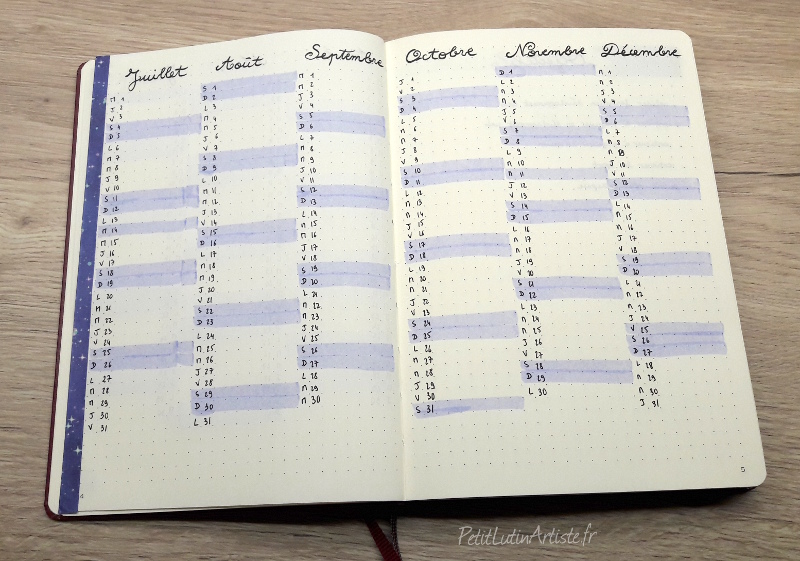 Juillet
M 1
J 2
V 3
S 4
D 5
L 6
M 7
M 8
J 9
V 10
S 11
D 12
L 13
M 14
M 15
J 16
V 17
S 18
D 19
L 20
M 21
M 22
J 23
V 24
S 25
D 26
L 27
M 28
M 29
J 30
V 31
Août
S 1
D 2
L 3
M 4
M 5
J 6
V 7
S 8
D 9
L 10
M 11
M 12
J 13
V 14
S 15
D 16
L 17
M 18
M 19
J 20
V 21
S 22
D 23
L 24
M 25
M 26
J 27
V 28
S 29
D 30
L 31
Septembre
M 1
M 2
J 3
V 4
S 5
D 6
L 7
M 8
M 9
J 10
V 11
S 12
D 13
L 14
M 15
M 16
J 17
V 18
S 19
D 20
L 21
M 22
M 23
J 24
V 25
S 26
D 27
L 28
M 29
M 30
Octobre
J 1
V 2
S 3
D 4
L 5
M 6
M 7
J 8
V 9
S 10
D 11
L 12
M 13
M 14
J 15
V 16
S 17
D 18
L 19
M 20
M 21
J 22
V 23
S 24
D 25
L 26
M 27
M 28
J 29
V 30
S 31
Novembre
D 1
L 2
M 3
M 4
J 5
V 6
S 7
D 8
L 9
M 10
M 11
J 12
V 13
S 14
D 15
L 16
M 17
M 18
J 19
V 20
S 21
D 22
L 23
M 24
M 25
J 26
V 27
S 28
D 29
L 30
Décembre
M 1
M 2
J 3
V 4
S 5
D 6
L 7
M 8
M 9
J 10
V 11
S 12
D 13
L 14
M 15
M 16
J 17
V 18
S 19
D 20
L 21
M 22
M 23
J 24
V 25
S 26
D 27
L 28
M 29
M 30
J 31
4
5
PetitLutinArtiste.fr